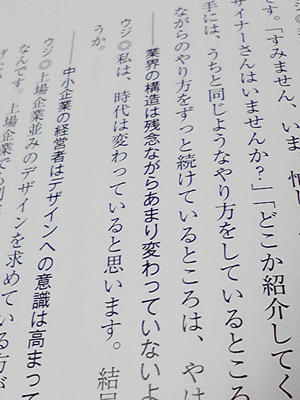 です。「すみません、いま
ザイナーさんはいませんか?」「どこか紹介してく
手には、うちと同じようなやり方をしているところ
ながらのやり方をずっと続けているところは、やは
――業界の構造は残念ながらあまり変わっていないよ
ウジ◎私は、時代は変わっていると思います。結局
うか。
――中小企業の経営者はデザインへの意識は高まって
ウジ◎上場企業並みのデザインを求めている方が
なんです。上場企業で